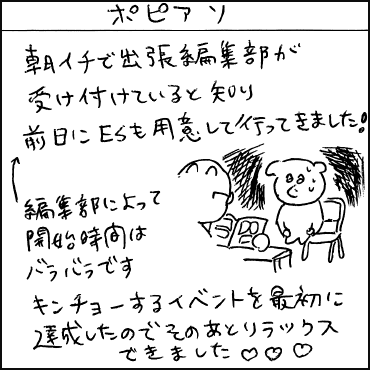 ポピアソ
朝イチで出張編集部が
受け付けていると知り
前日にESも用意して行ってきました!
編集部によって
開始時間は
バラバラです
キンチョーするイベントを最初に
達成したのでそのあとリラックス
できました♡♡♡